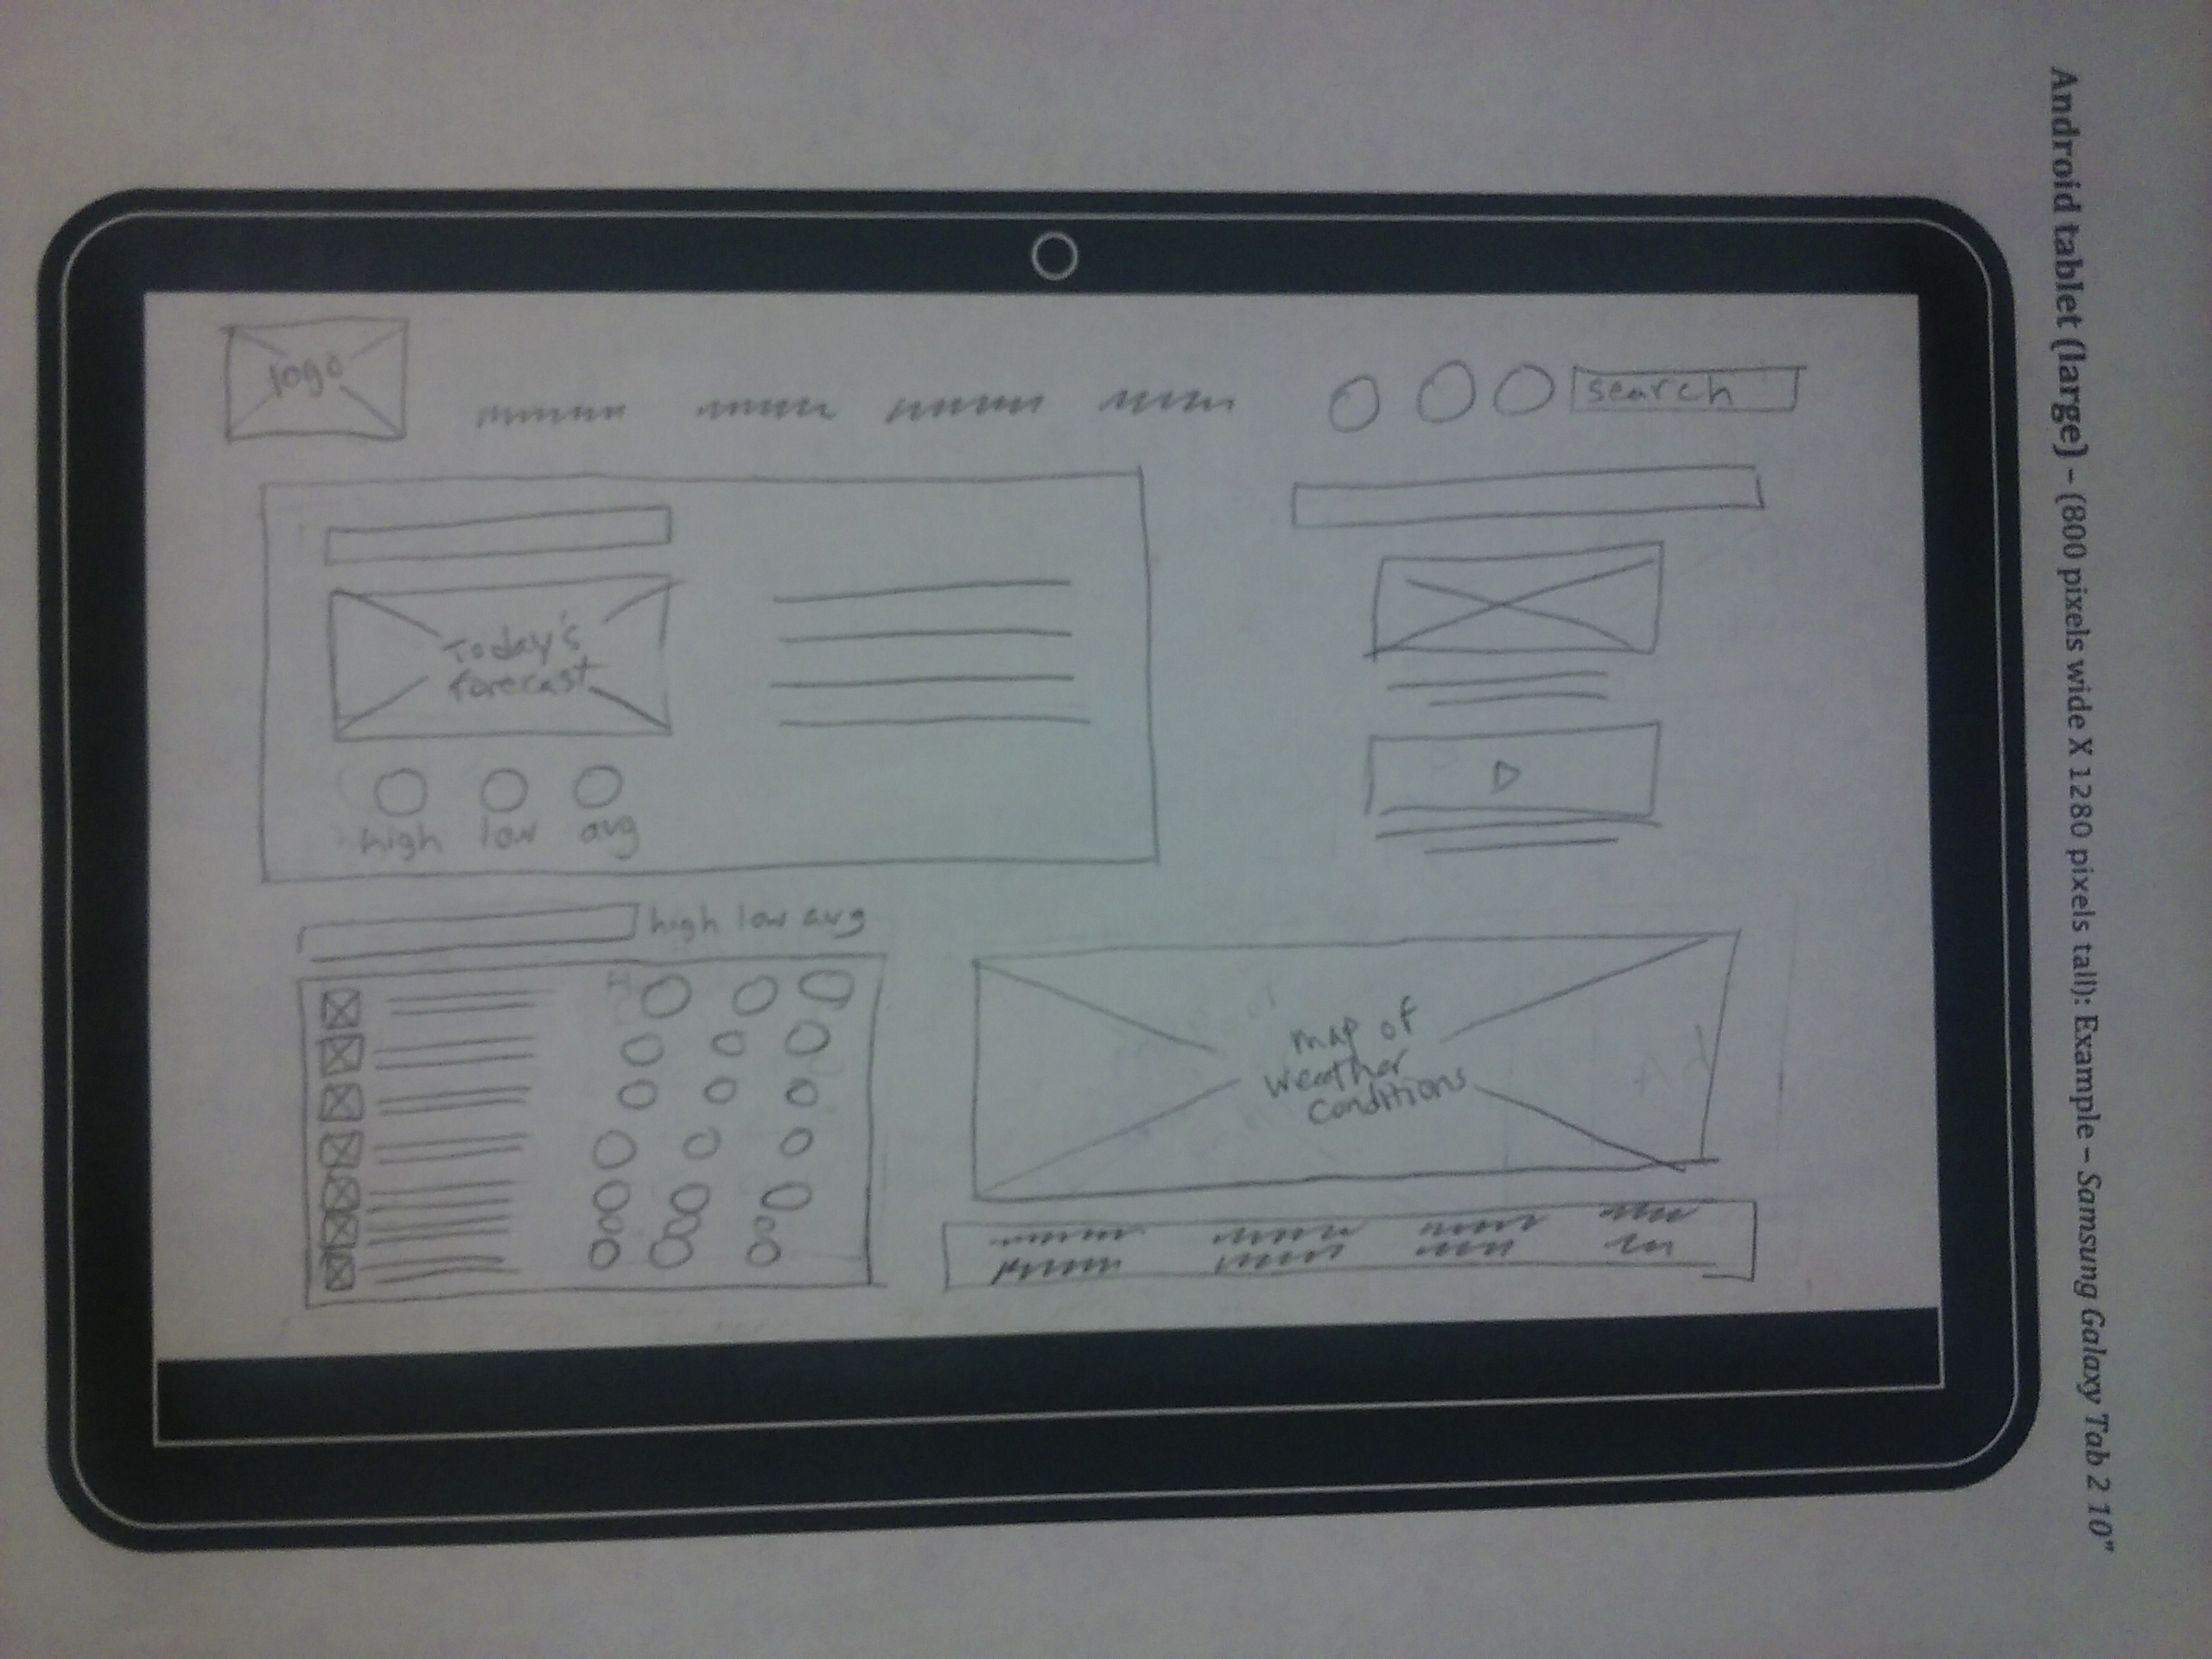 Android tablet (large) – (800 pixels wide X 1280 pixels tall): Example – Samsung Galaxy Tab 2 10"
logo
search
Today's
forecast
high low avg
high low avg
map of
weather
conditions